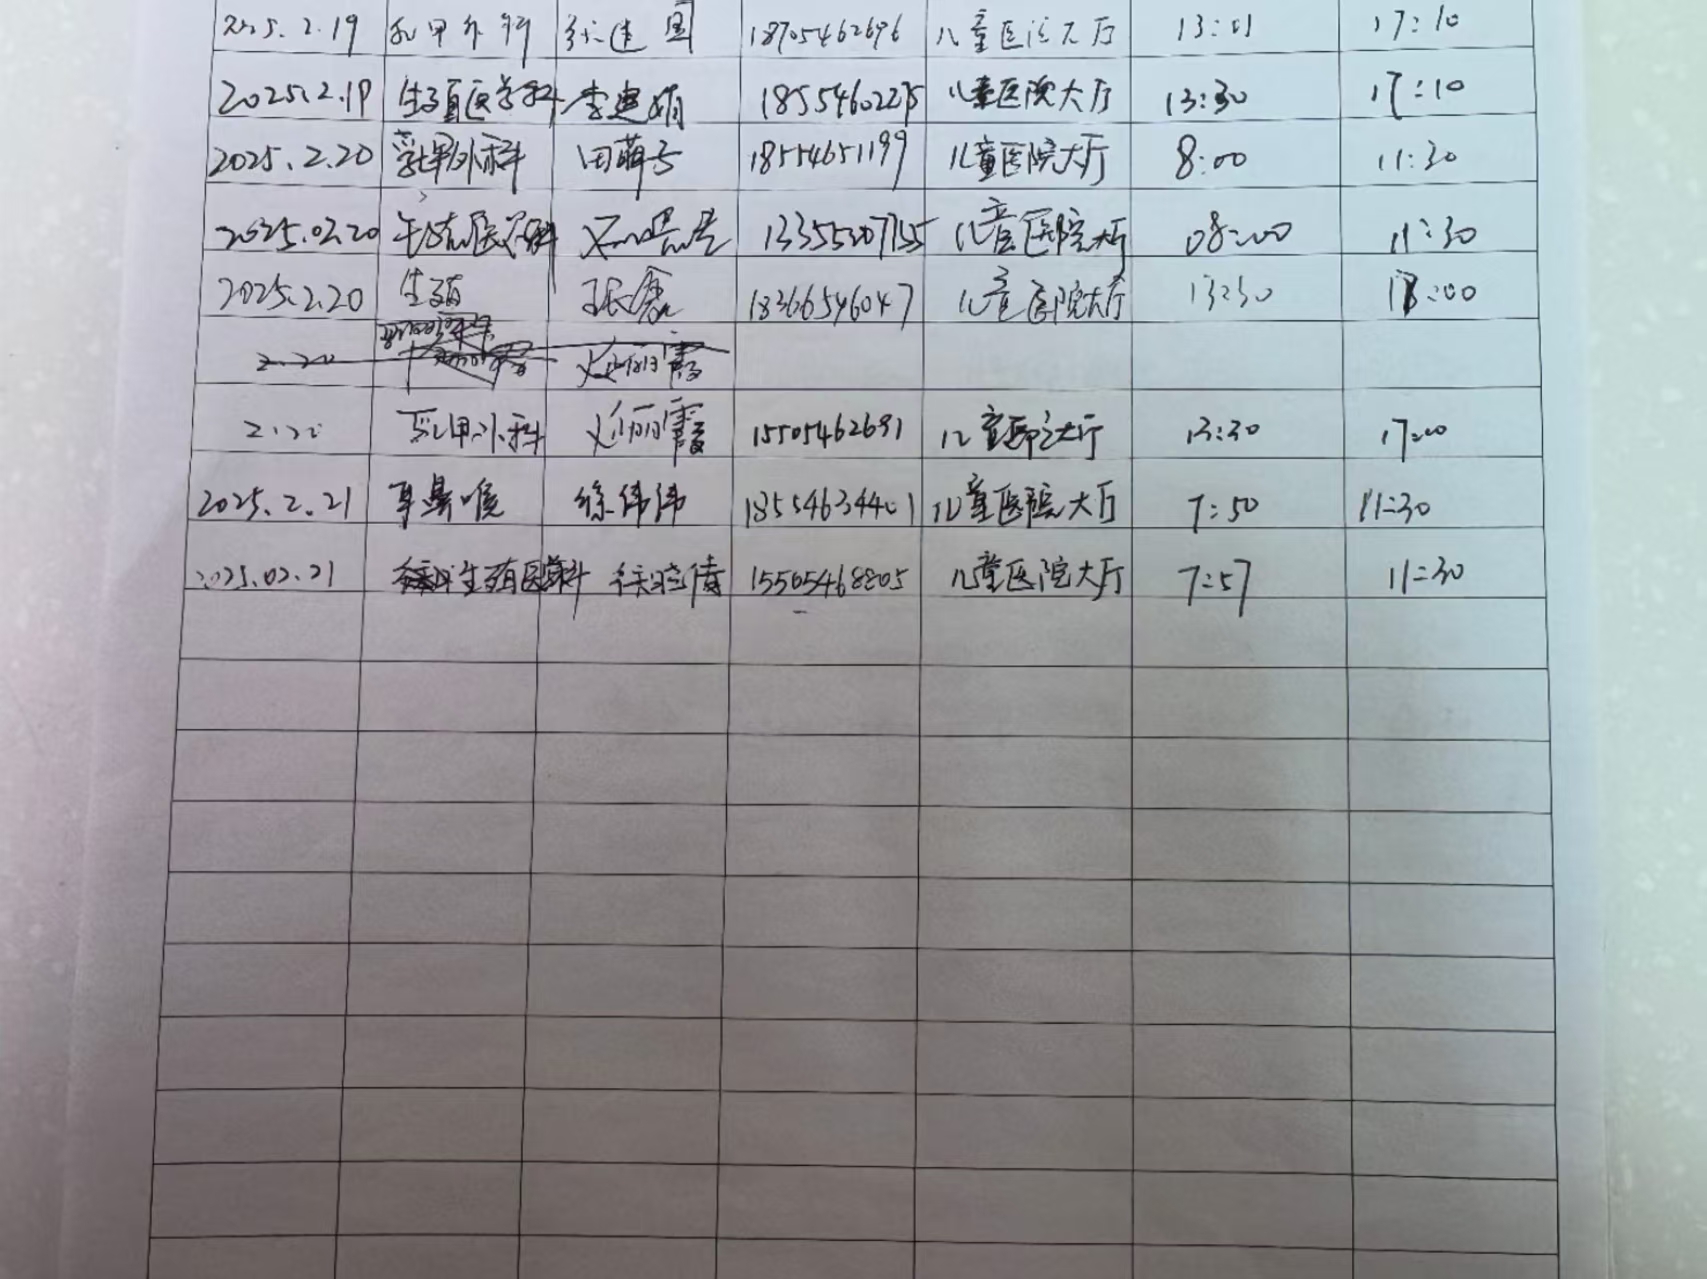 2025.2.19 乳甲外科 18705462696 儿童医院大厅 13:01 17:10
2025.2.19 生殖医学科 李建娟 18554602275 儿童医院大厅 13:30 17:10
2025.2.20 乳甲外科 田萌 18554651199 儿童医院大厅 8:00 11:30
2025.02.20 生殖医学科 13355207155 儿童医院大厅 08:00 11:30
2025.2.20 生殖 18366546047 儿童医院大厅 13:30 17:00
2.20 赵丽霞
2.20 乳甲外科 赵丽霞 15505462691 儿童医院大厅 13:30 17:00
2025.2.21 耳鼻喉 徐伟伟 18554634401 儿童医院大厅 7:50 11:30
2025.02.21 生殖医学科 徐晓倩 15505468805 儿童医院大厅 7:57 11:30